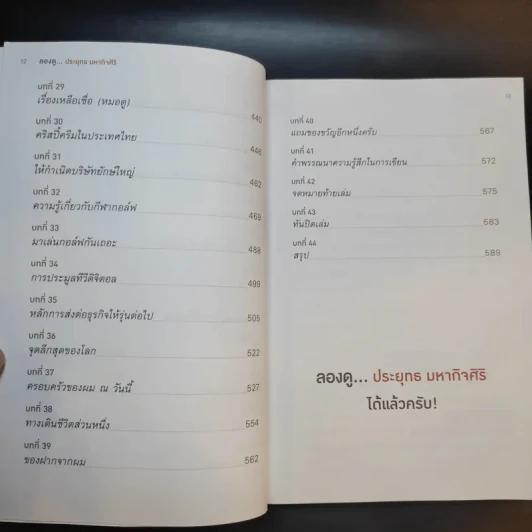 12 ลองดู... ประยุทธ มหากิจศิริ
บทที่ 29
เรื่องเหลือเชื่อ (หมอดู) 440
บทที่ 30
คริสปี้ครีมในประเทศไทย 446
บทที่ 31
ให้กำเนิดบริษัทยักษ์ใหญ่ 462
บทที่ 32
ความรู้เกี่ยวกับกีฬากอล์ฟ 469
บทที่ 33
มาเล่นกอล์ฟกันเถอะ 488
บทที่ 34
การประมูลทีวีดิจิตอล 499
บทที่ 35
หลักการส่งต่อธุรกิจให้รุ่นต่อไป 505
บทที่ 36
จุดลึกสุดของโลก 522
บทที่ 37
ครอบครัวของผม ณ วันนี้ 527
บทที่ 38
ทางเดินชีวิตส่วนหนึ่ง 554
บทที่ 39
ของฝากจากผม 562
บทที่ 40
แถมของขวัญอีกหนึ่งครับ 567
บทที่ 41
คำพรรณนาความรู้สึกในการเขียน 572
บทที่ 42
จดหมายท้ายเล่ม 575
บทที่ 43
ทันปิดเล่ม 583
บทที่ 44
สรุป 589
ลองดู... ประยุทธ มหากิจศิริ
ได้แล้วครับ!